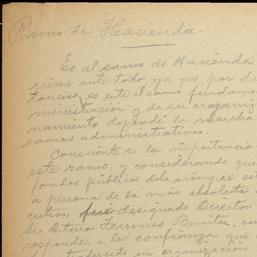 Ramo de Hacienda.
Es al ramo de Hacienda
ante todo, ya que por
tancias, es este el ramo fundame
ministración y de su organi
namiento depende la marcha
ramos administrativos.
Consciente de la importancia
este ramo, y considerando que
fondos públicos debe siempre est
a persona de la más absoluta
cutivo, fué designado Director
Sr. Arturo Terrones Benítez, 
responder a la confianza que
organización